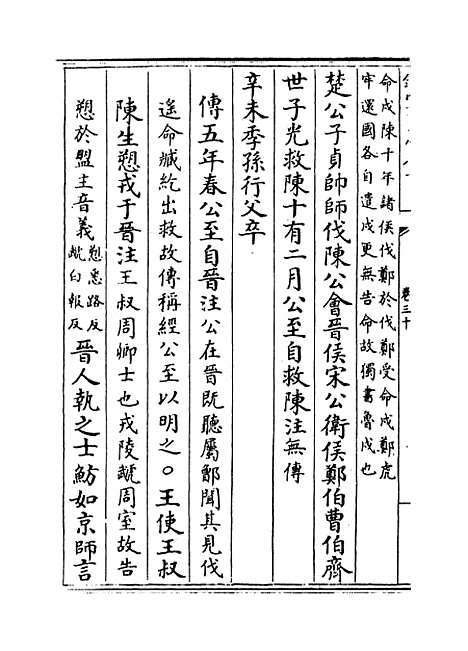 命戍陳十年諸侯伐鄭於伐鄭受命戍鄭虎
牢還國各自遣戍更無告命故獨書魯戍也
楚公子貞帥師伐陳公會晉侯宋公衛侯鄭伯曹伯齊
世子光救陳十有二月公至自救陳注無傳
辛未季孫行父卒
傳五年春公至自晉注公在晉既聽屬鄫聞其見伐
遥命臧紇出救故傳稱經公至以明之○王使王叔
陳生愬戎于晉注王叔周卿士也戎陵虣周室故告
愬於盟主音義愬悉路反虣白報反晉人執之士魴如京師言
卷三十